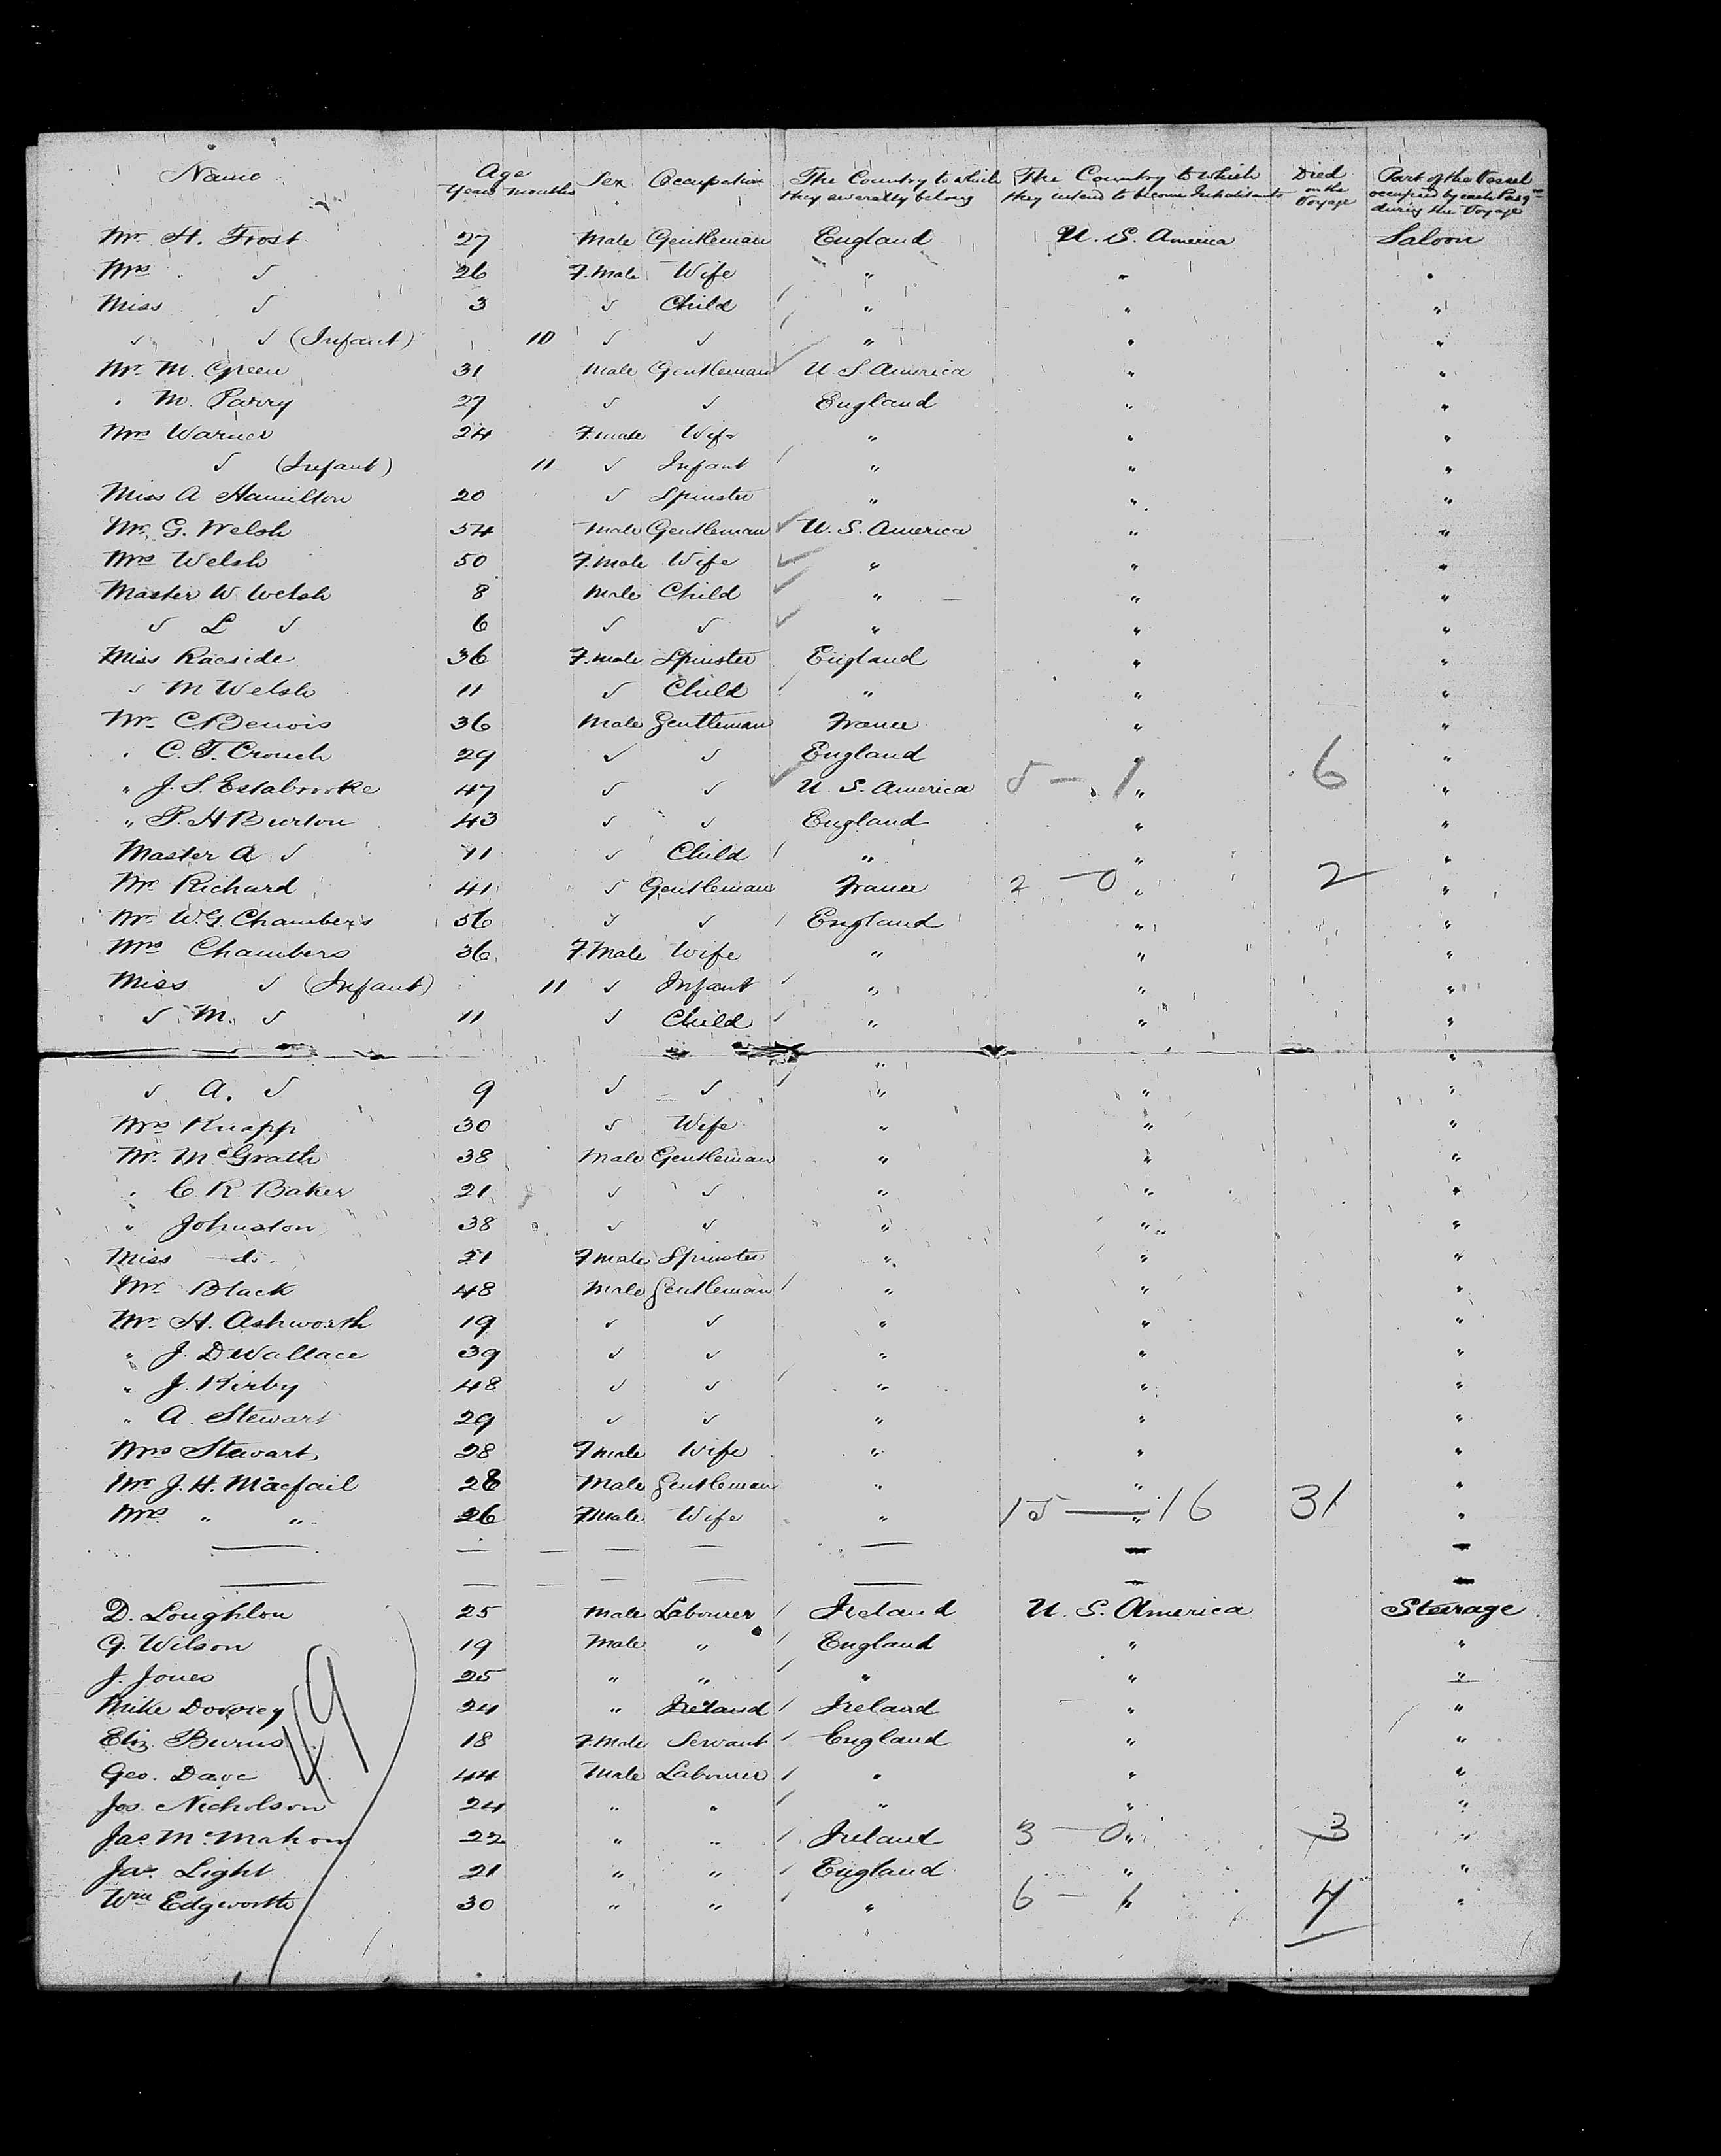 Name Age Years Months Sex Occupation The Country to which they severally belong The Country to which they intend to become Inhabitants Died on the Voyage Part of the Vessel occupied by each Passgr during the Voyage
Mr. H. Frost 27 Male Gentleman England U. S. America Saloon
Mrs √ 26 F.male Wife " " "
Miss √ 3 √ Child " " "
√ √ (Infant) 10 √ √ " " "
Mr. M. Green 31 Male Gentleman U. S. America " "
" M. Parry 27 √ √ England " "
Mrs Warner 24 F.male Wife " " "
√ (Infant) 11 √ Infant " " "
Miss A Hamilton 20 √ Spinster " " "
Mr. G. Welsh 54 Male Gentleman U. S. America " "
Mrs Welsh 50 F.male Wife " " "
Master W Welsh 8 Male Child " " "
√ L √ 6 √ √ " " "
Miss Racside 36 F.male Spinster England " "
√ M Welsh 11 √ Child " " "
Mr. C. Benois 36 Male Gentleman France " "
" C. T. Crouch 29 √ √ England " "
" J. S. Estabrooke 47 √ √ U. S. America 5 — 1 " 6 "
" P. H Burton 43 √ √ England " "
Master A √ 11 √ Child " " "
Mr. Richard 41 √ Gentleman France 2 — 0 " 2 "
Mr. W. G. Chambers 56 √ √ England " "
Mrs Chambers 36 F.Male Wife " " "
Miss √ (Infant) 11 √ Infant " " "
√ M. √ 11 √ Child " " "
" "
√ A. √ 9 √ √ " " "
Mrs Knapp 30 √ Wife " " "
Mr. McGrath 38 Male Gentleman " " "
" C. R. Baker 21 √ √ " " "
" Johnston 38 √ √ " " "
Miss — do — 21 F.male Spinster " " "
Mr. Black 48 Male Gentleman " " "
Mr. H. Ashworth 19 √ √ " " "
" J. D. Wallace 39 √ √ " " "
" J. Kirby 48 √ √ " " "
" A. Stewart 29 √ √ " " "
Mrs Stewart 28 F.male Wife " " "
Mr J. H. Macfail 28 Male Gentleman " " "
Mrs " " 26 F.Male Wife " 15 — 16 " 31 "
D. Loughlon 25 Male Labourer Ireland U. S. America Steerage
G. Wilson 19 Male " England " "
J. Jones 25 " " " " "
Mike 24 " Ireland Ireland " "
Eliz Burns 18 F.Male Servant England " "
49
Geo. Daye 44 Male Labourer " " "
Jos. Nicholson 24 " " " " "
Jas McMahon 22 " " Ireland 3 — 0 " 3 "
Jas. Light 21 " " England " "
Wm Edgworth 30 " " " 6 — 1 " 7 "